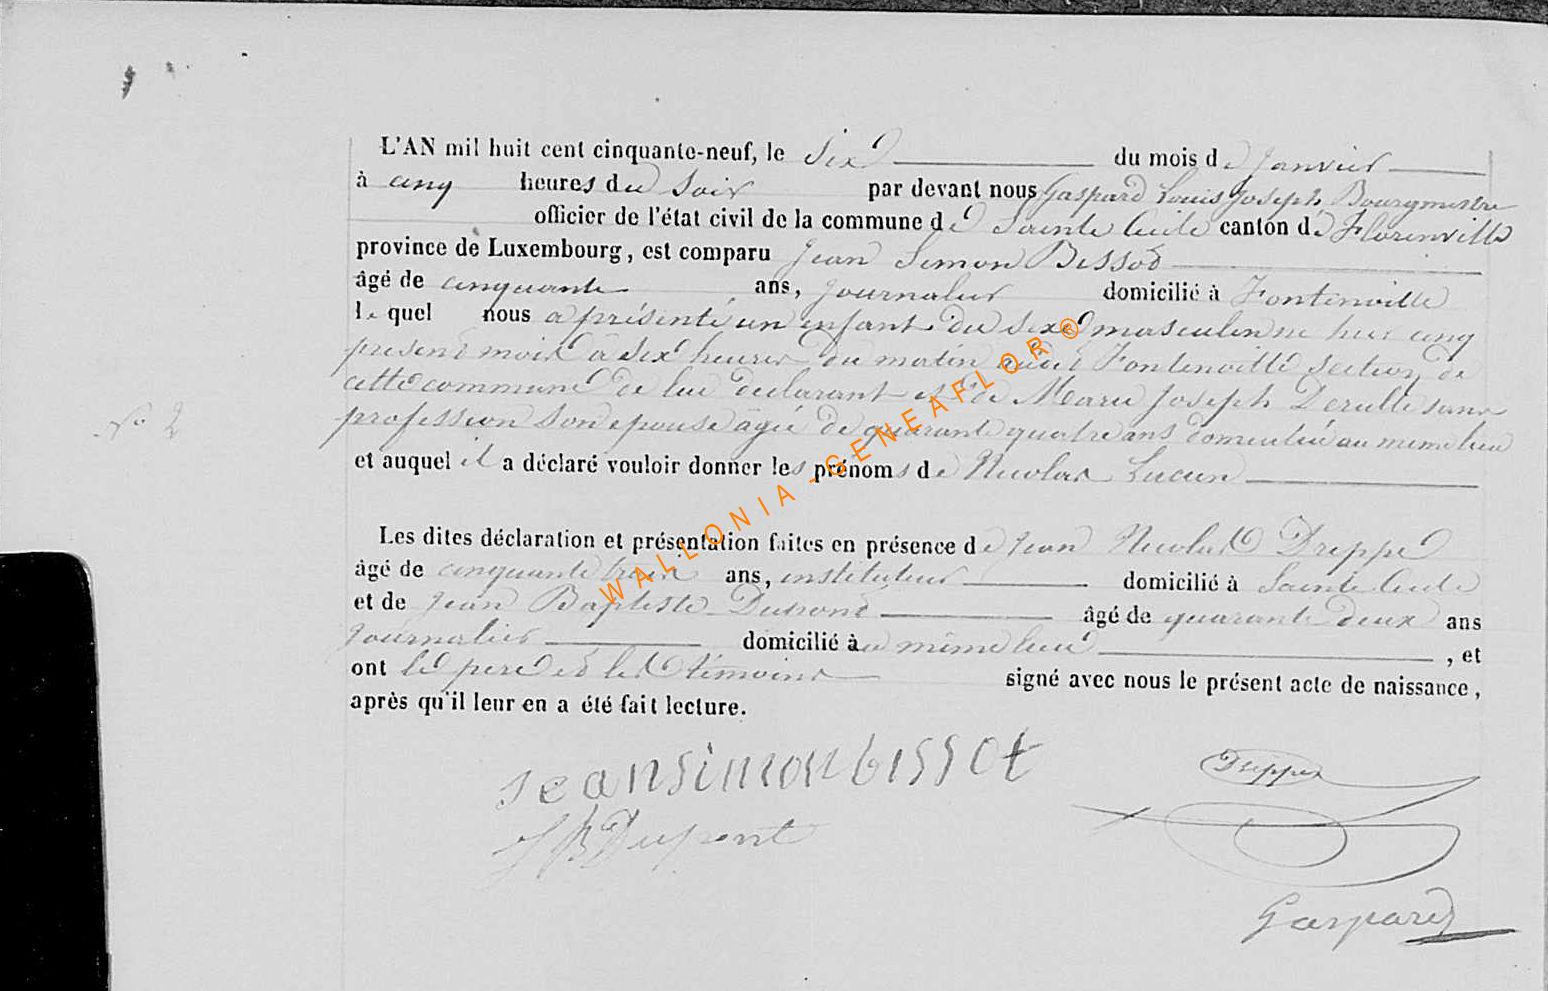 L'AN mil huit cent cinquante-neuf, le Six du mois de Janvier
à cinq heures du Soir par devant nous Gaspard Louis Joseph Bourgmestre
officier de l'état civil de la commune de Sainte Cécile canton de Florenville
province de Luxembourg, est comparu Jean Simon Bissot
âgé de cinquante ans, journalier domicilié à Fontenoille
le quel nous a présenté un enfant du sexe masculin né hier cinq
présent mois à six heures du matin audit Fontenoille section de
cette commune de lui déclarant et de Marie Joseph Derulle sans
profession son épouse âgée de quarante quatre ans domiciliée au même lieu
N° 2
et auquel il a déclaré vouloir donner les prénoms de Nicolas Lucien
Les dites déclaration et présentation faites en présence de Jean Nicolas Dreppe
âgé de cinquante trois ans, instituteur domicilié à Sainte Cécile
et de Jean Baptiste Dupont âgé de quarante deux ans
journalier domicilié au même lieu, et
ont le père et les témoins signé avec nous le présent acte de naissance,
après qu'il leur en a été fait lecture.
jeansimonbissot
Dreppe
JB Dupont
Gaspard
WALLONIA - GENEAFLOR®